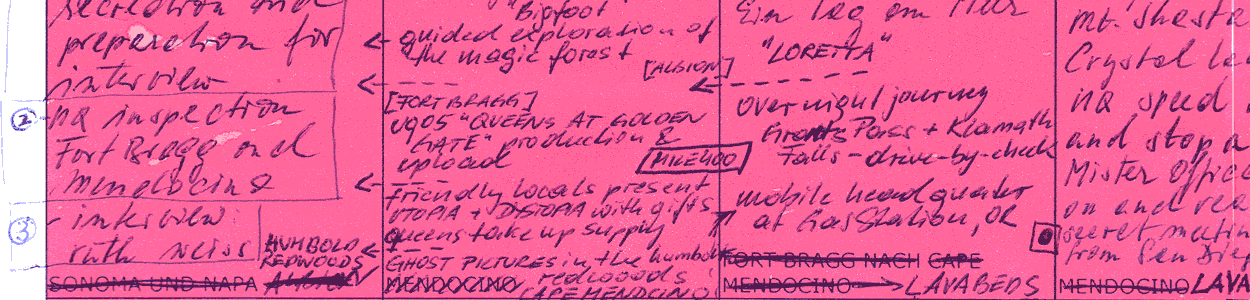 preparation for
interview
② HQ inspection
Fort Bragg and
Mendocino
③ - interview
ruth weiss
HUMBOLD
REDWOODS
SONOMA UND NAPA
"Bigfoot"
← guided exploration of
the magic forest
[ALBION]
[FORT BRAGG]
VG05 "QUEENS AT GOLDEN
GATE" production &
upload
MILE400
← friendly locals present
UTOPIA + DYSTOPIA with gifts
queens take up supply
GHOST PICTURES in the humboldt
redwoods
MENDOCINO
CAPE MENDOCINO
Ein Tag am Meer
"LORETTA"
overnight journey
Grants Pass + Klamath
Falls - drive-by-check
mobile headquarter
at Gas Station, OR
FORT BRAGG NACH CAPE
MENDOCINO → LAVABEDS
Mt. Shasta
Crystal
HQ speed
and stop
Mister Office
on and
secret
from San
MENDOCINO LAVA